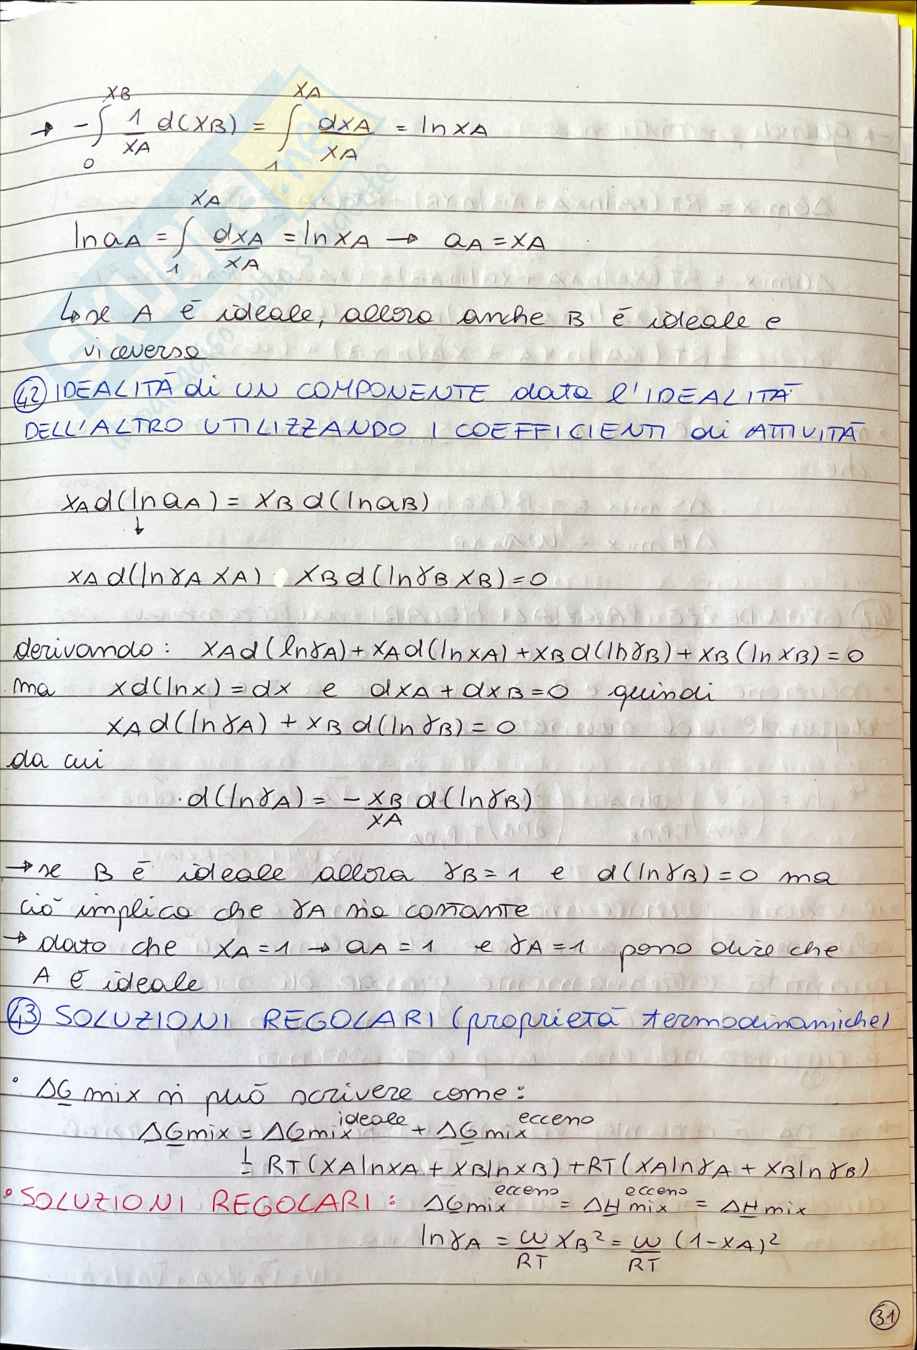 → -∫₀^XB 1/XA d(XB) = ∫₁^XA dXA/XA = ln XA
ln aA = ∫₁^XA dXA/XA = ln XA → aA = XA
↳ se A è ideale, allora anche B è ideale e
viceversa
㊷ IDEALITÀ di UN COMPONENTE data l'IDEALITÀ
DELL'ALTRO UTILIZZANDO I COEFFICIENTI di ATTIVITÀ
XA d(ln aA) = XB d(ln aB)
↓
XA d(ln γA XA) XB d(ln γB XB) = 0
derivando: XA d(ln γA) + XA d(ln XA) + XB d(ln γB) + XB (ln XB) = 0
ma x d(ln x) = dx e dXA + dXB = 0 quindi
XA d(ln γA) + XB d(ln γB) = 0
da cui
d(ln γA) = - XB/XA d(ln γB)
→ se B è ideale allora γB = 1 e d(ln γB) = 0 ma
ciò implica che γA sia costante
→ dato che XA = 1 → aA = 1 e γA = 1 posso dire che
A è ideale
㊸ SOLUZIONI REGOLARI (proprietà termodinamiche)
• ΔG mix si può scrivere come:
ΔG mix = ΔG mix^ideale + ΔG mix^eccesso
= RT(XA ln XA + XB ln XB) + RT(XA ln γA + XB ln γB)
• SOLUZIONI REGOLARI: ΔG mix^eccesso = ΔH mix^eccesso = ΔH mix
ln γA = ω/RT XB² = ω/RT (1-XA)²
31